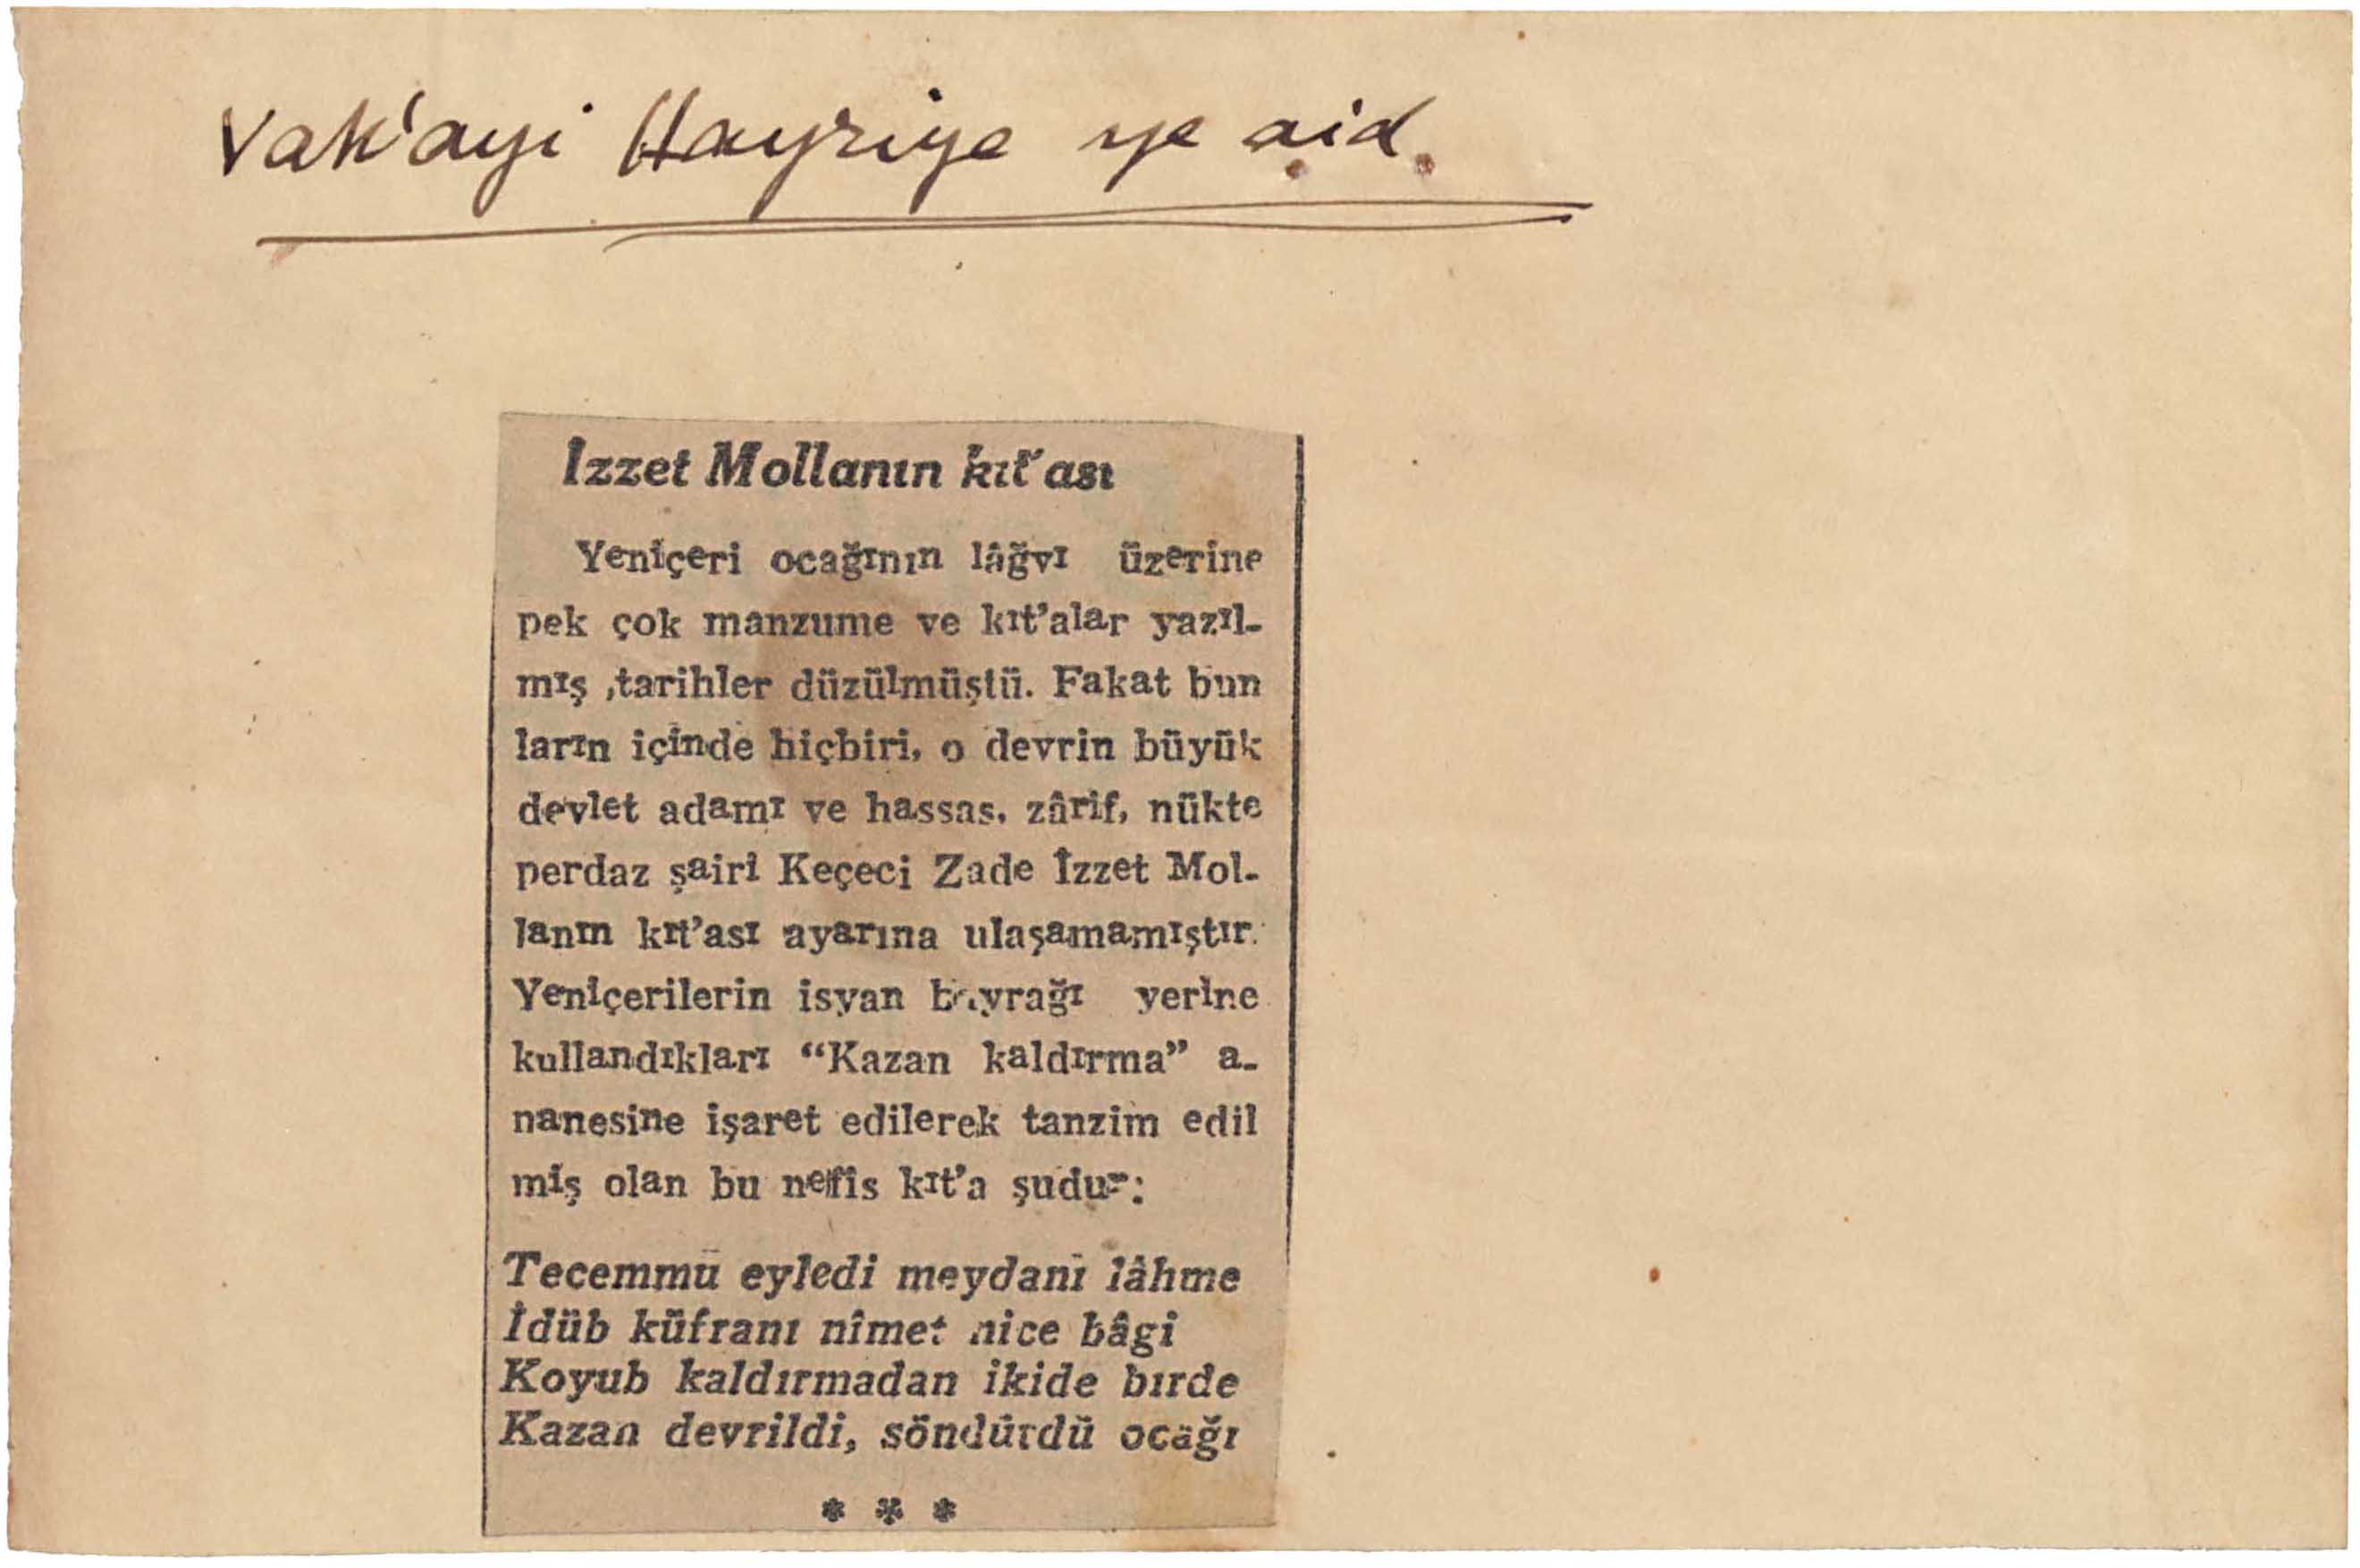 Vak'ayi Hayriye ye aid.
İzzet Mollanın kıt'ası
Yeniçeri ocağının lâğvı üzerine
pek çok manzume ve kıt'alar yazıl-
mış ,tarihler düzülmüştü. Fakat bun
ların içinde hiçbiri, o devrin büyük
devlet adamı ve hassas, zârif, nükte
perdaz şairi Keçeci Zade İzzet Mol-
lanın kıt'ası ayarına ulaşamamıştır.
Yeniçerilerin isyan bayrağı yerine
kullandıkları “Kazan kaldırma” a-
nanesine işaret edilerek tanzim edil
miş olan bu nefis kıt'a şudur:
Tecemmü eyledi meydanı lâhme
İdüb küfranı nîmet nice bâgi
Koyub kaldırmadan ikide bırde
Kazan devrildi, söndürdü ocağı
* * *